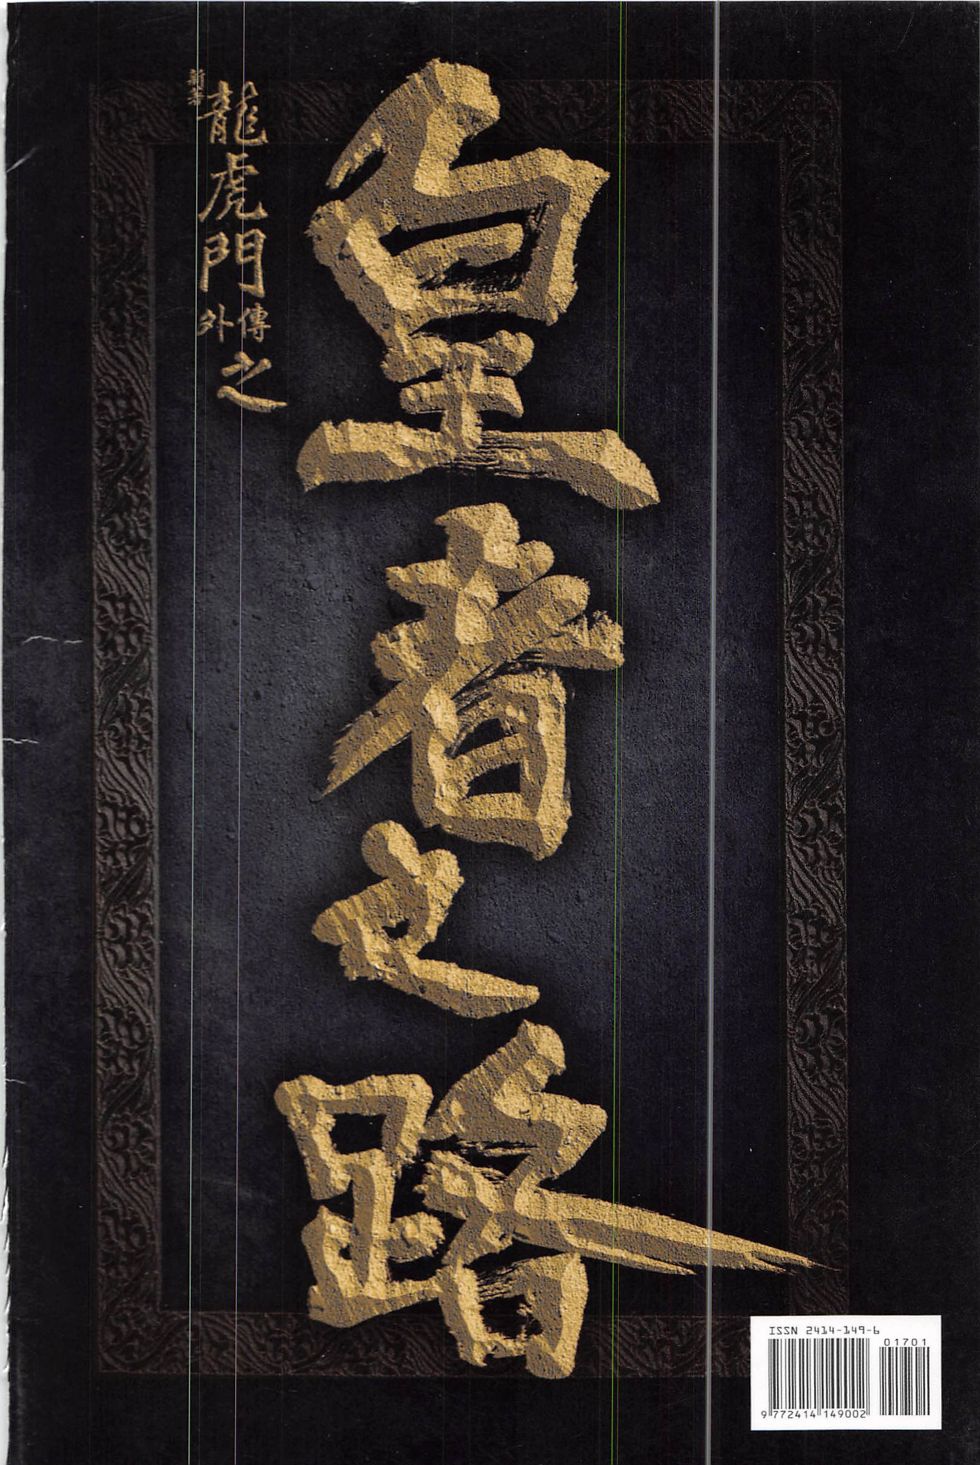 龍虎門
外傳
之
皇者之路
ISSN 2414-149-6
01701
9 772414 149002